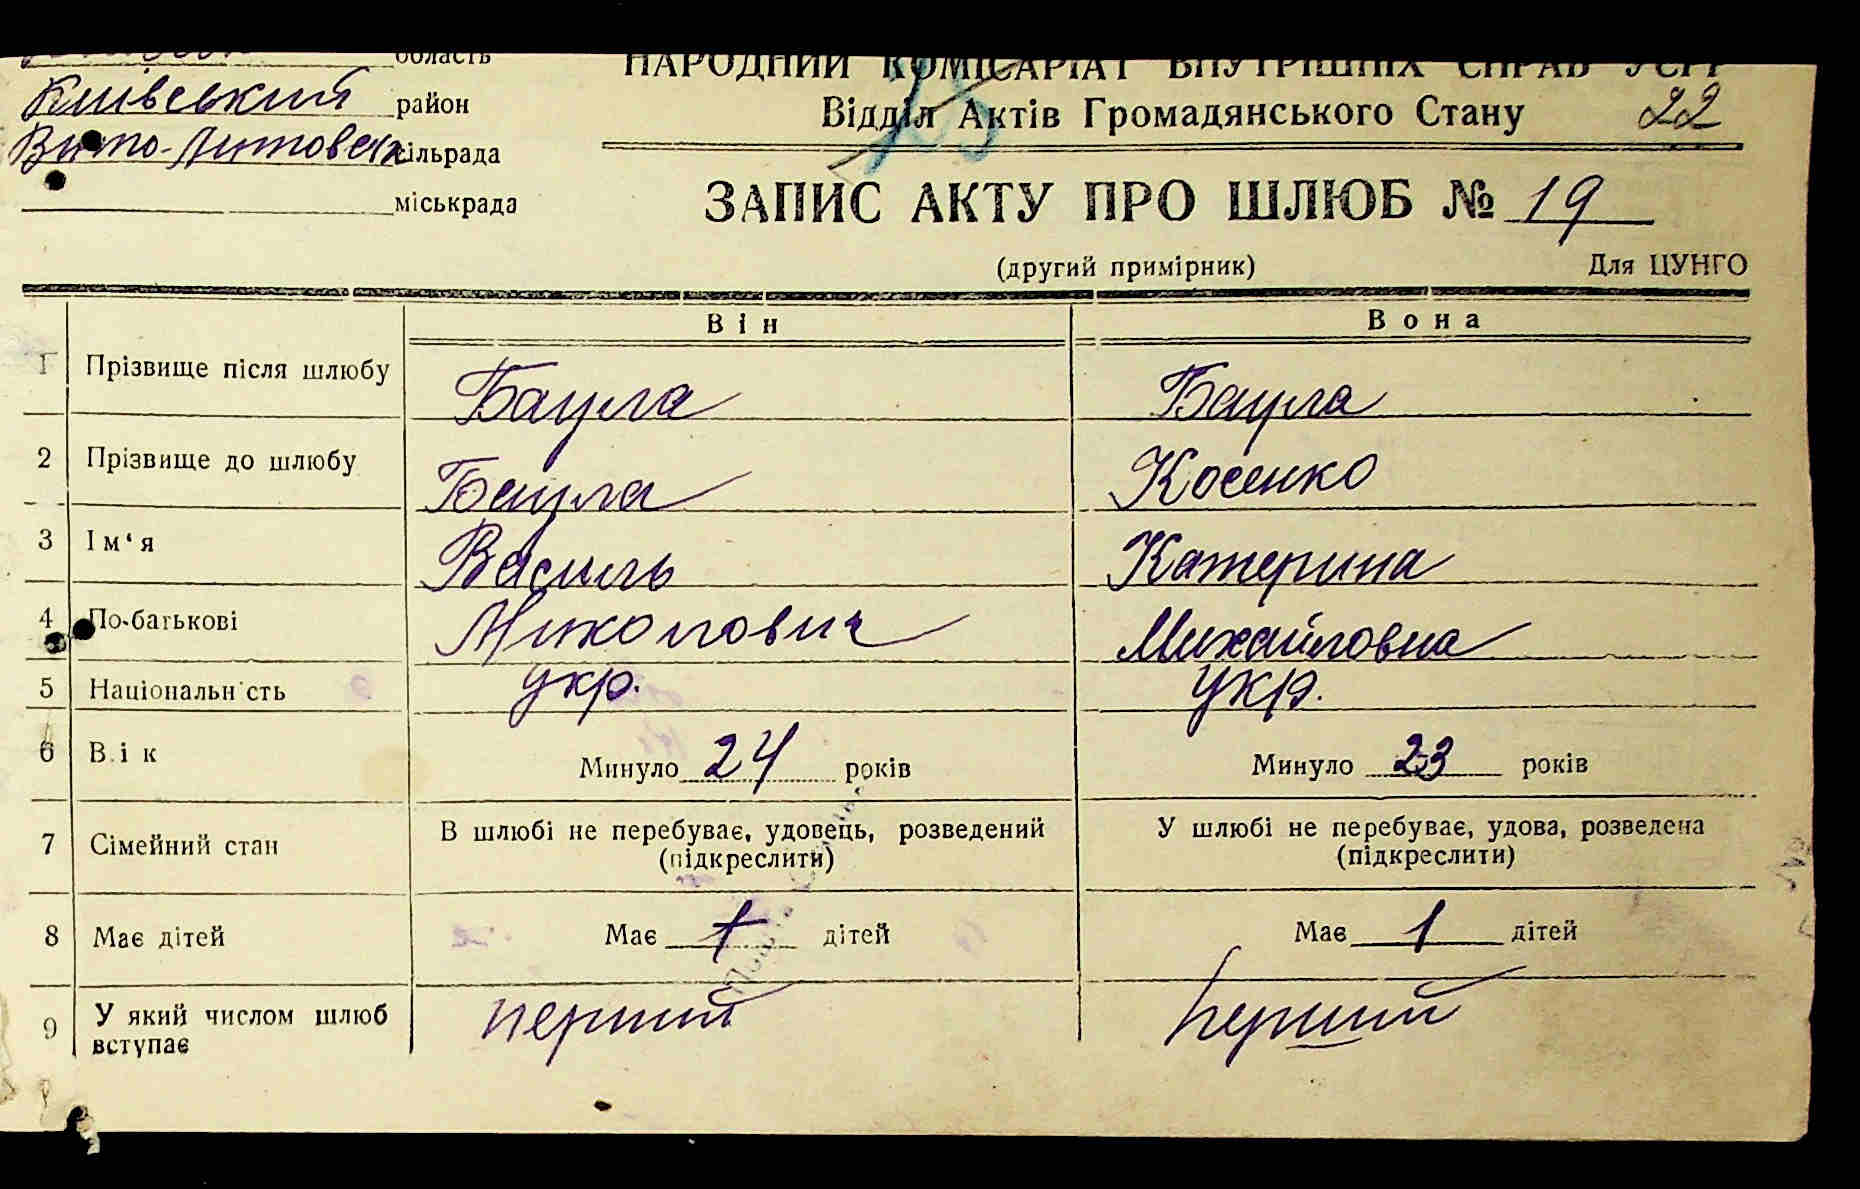 область
Київський район
Вито-Литовськ сільрада
міськрада
НАРОДНИЙ КОМІСАРІАТ ВНУТРІШНІХ СПРАВ УСРР
Відділ Актів Громадянського Стану 22
ЗАПИС АКТУ ПРО ШЛЮБ № 19
(другий примірник) Для ЦУНГО
Він Вона
1 Прізвище після шлюбу Бацула Бацула
2 Прізвище до шлюбу Бацула Косенко
3 Ім‘я Василь Катерина
4 По-батькові Миколович Михайловна
5 Національність укр. укр.
6 Вік Минуло 24 років Минуло 23 років
7 Сімейний стан В шлюбі не перебуває, удовець, розведений (підкреслити) У шлюбі не перебуває, удова, розведена (підкреслити)
8 Має дітей Має 1 дітей Має 1 дітей
9 У який числом шлюб вступає перший перший